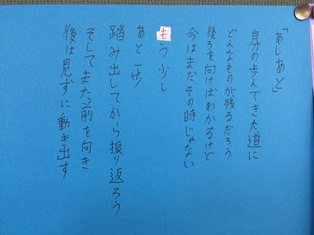 「あしあと」
自分の歩んできた道に
どんなものが残るだろう
後ろを向けばわかるけど
今はまだその時じゃない
もう少し
あと一歩
踏み出してから振り返ろう
そしてまた前を向き
後は見ずに動き出す